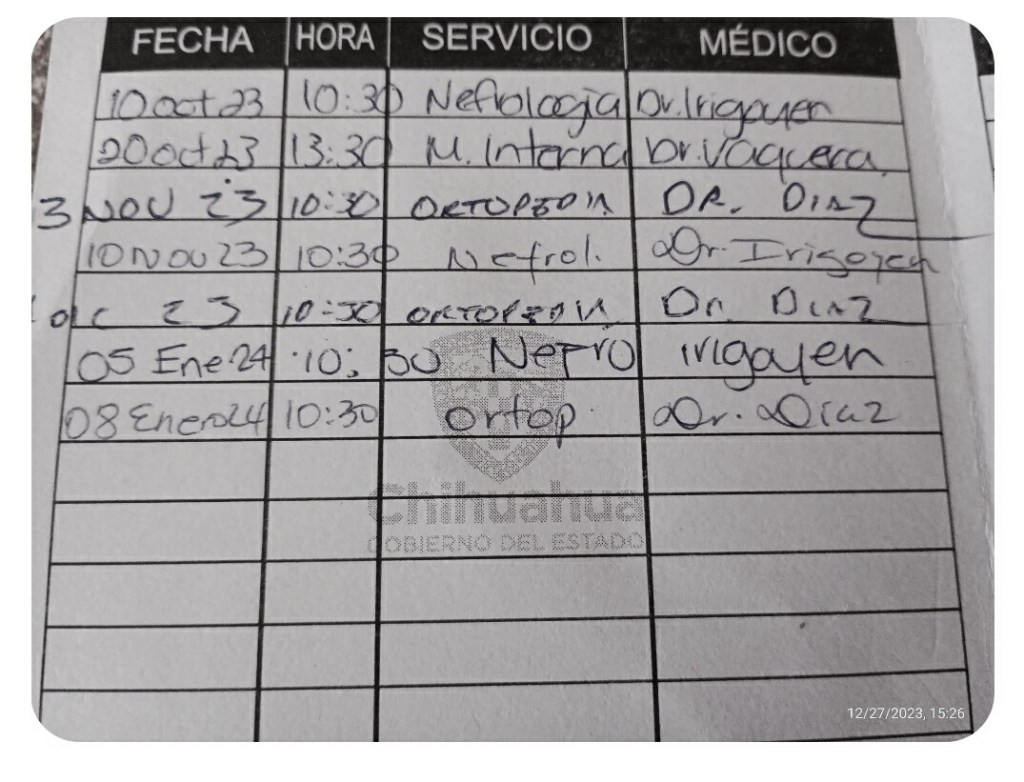 FECHA HORA SERVICIO MÉDICO
10 oct 23 10:30 Nefrología Dr. Irigoyen
20 oct 23 13:30 M. Interna Dr. Vaquera
3 NOV 23 10:30 ORTOPEDIA DR. DIAZ
10 Nov 23 10:30 Nefrol. Dr. Irigoyen
dic 23 10:30 ORTOPEDIA Dr. DIAZ
05 Ene 24 10:30 Nefro irigoyen
08 Enero 24 10:30 Ortop. Dr. Diaz
Chihuahua
GOBIERNO DEL ESTADO
12/27/2023, 15:26